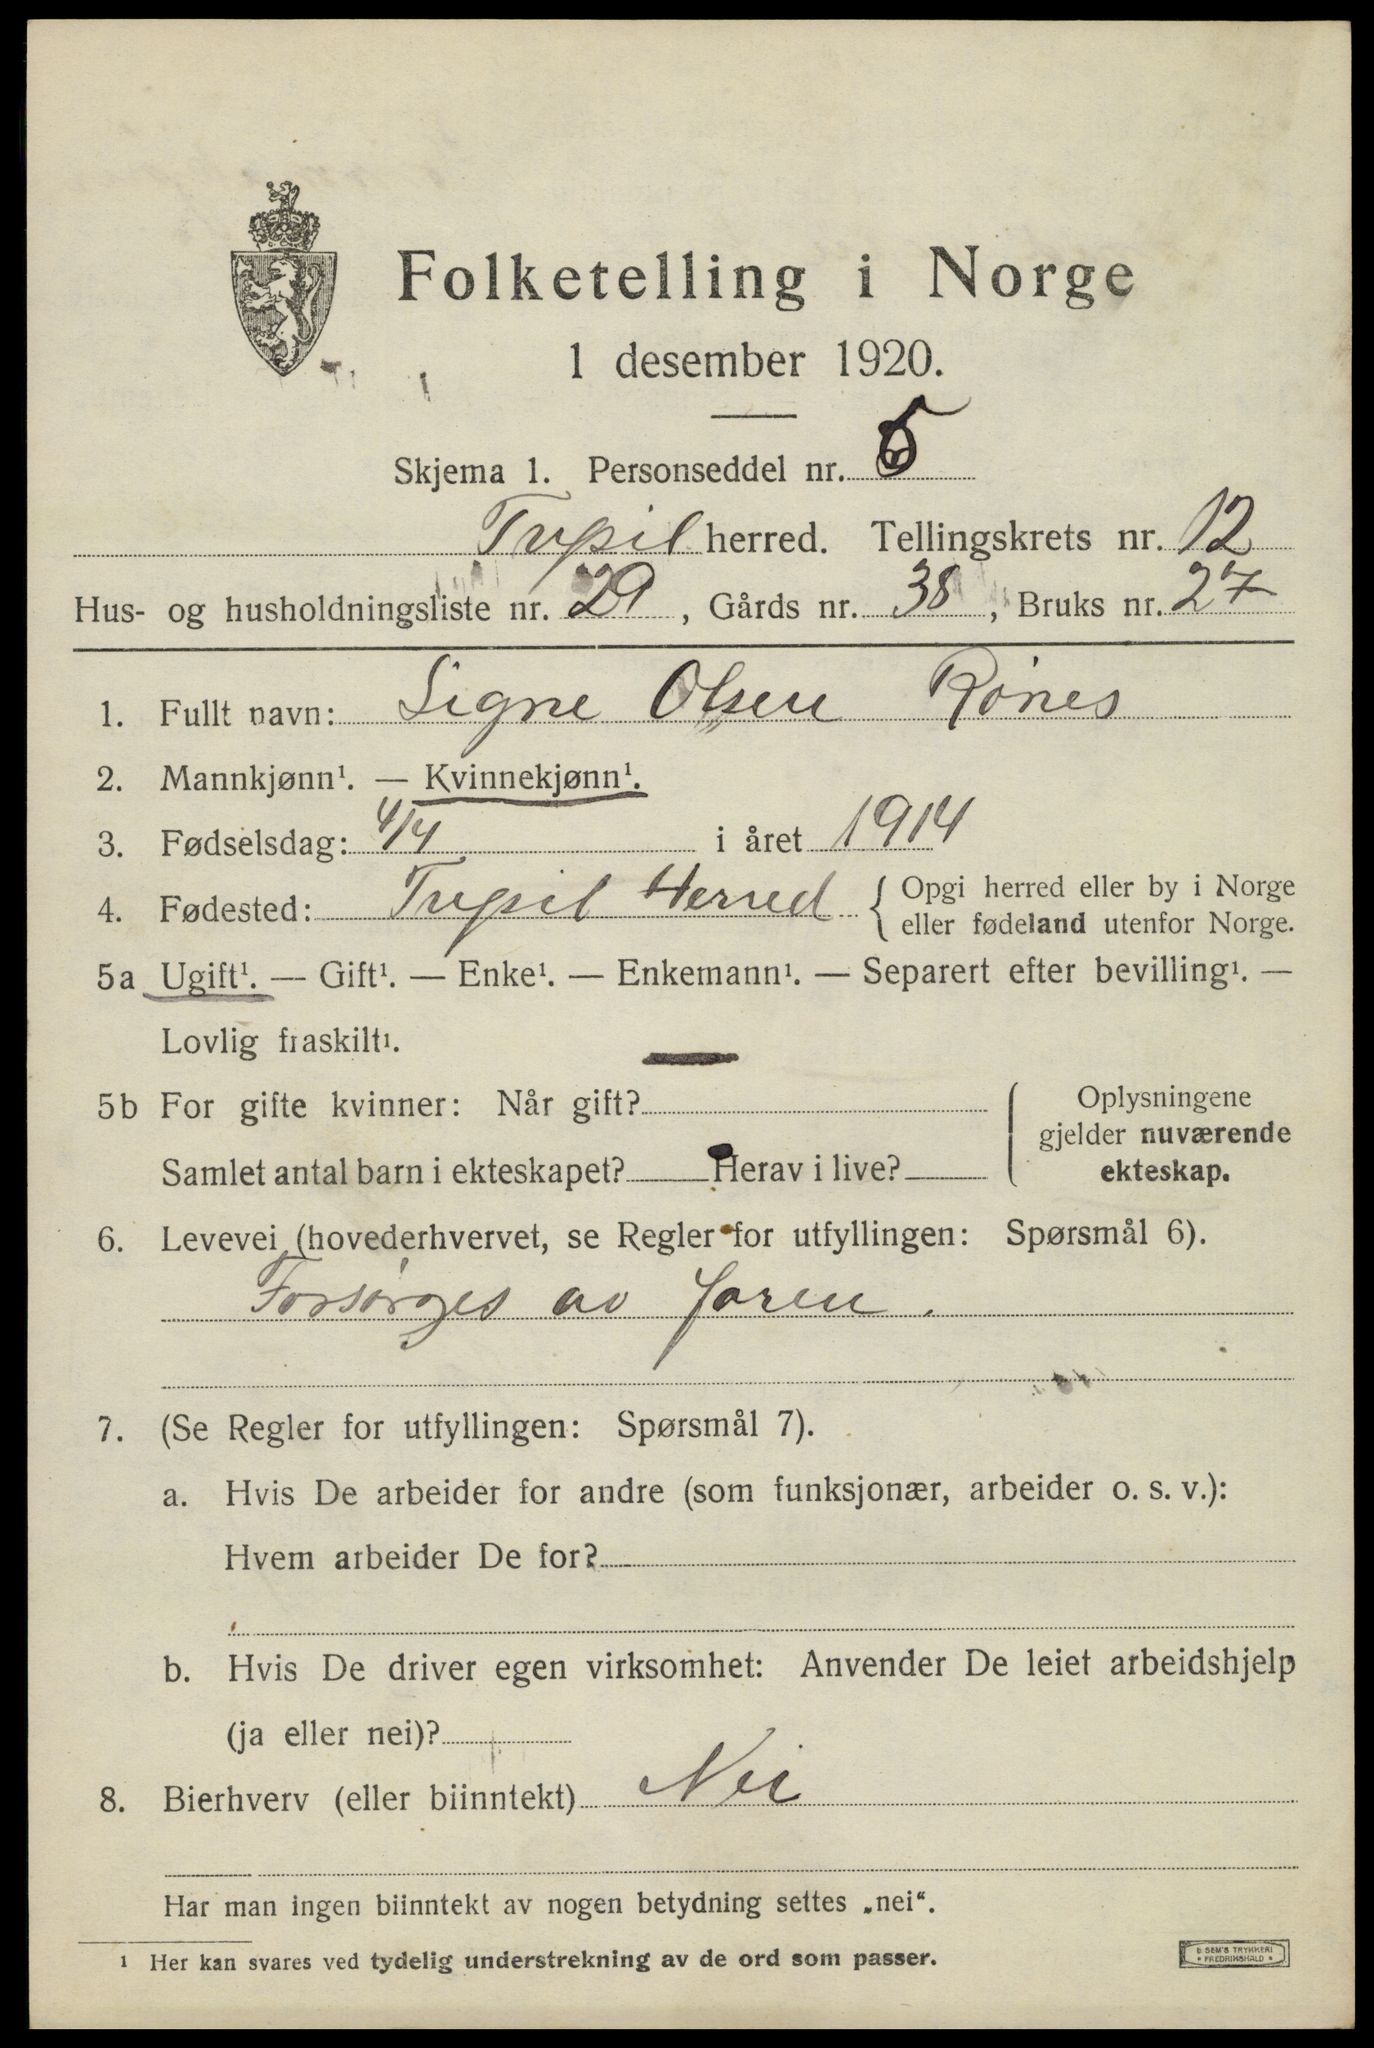 Folketelling i Norge
1 desember 1920.
Skjema 1. Personseddel nr. 5
Trysil herred. Tellingskrets nr. 12
Hus- og husholdningsliste nr. 29, Gårds nr. 38, Bruks nr. 27
1. Fullt navn: Signe Olsen Rønes
2. Mannkjønn¹. — Kvinnekjønn¹.
3. Fødselsdag: 4/4 i året 1914
4. Fødested: Trysil Herred { Opgi herred eller by i Norge
eller fødeland utenfor Norge.
5a Ugift¹. — Gift¹. — Enke¹. — Enkemann¹. — Separert efter bevilling¹. —
Lovlig fraskilt¹.
5b For gifte kvinner: Når gift?
Samlet antal barn i ekteskapet? Herav i live?
Oplysningene
gjelder nuværende
ekteskap.
6. Levevei (hovederhvervet, se Regler for utfyllingen: Spørsmål 6).
Forsørges av faren.
7. (Se Regler for utfyllingen: Spørsmål 7).
a. Hvis De arbeider for andre (som funksjonær, arbeider o. s. v.):
Hvem arbeider De for?
b. Hvis De driver egen virksomhet: Anvender De leiet arbeidshjelp
(ja eller nei)?
8. Bierhverv (eller biinntekt) Nei
Har man ingen biinntekt av nogen betydning settes „nei“.
¹ Her kan svares ved tydelig understrekning av de ord som passer.
E. SEM'S TRYKKERI
• FREDRIKSHALD •